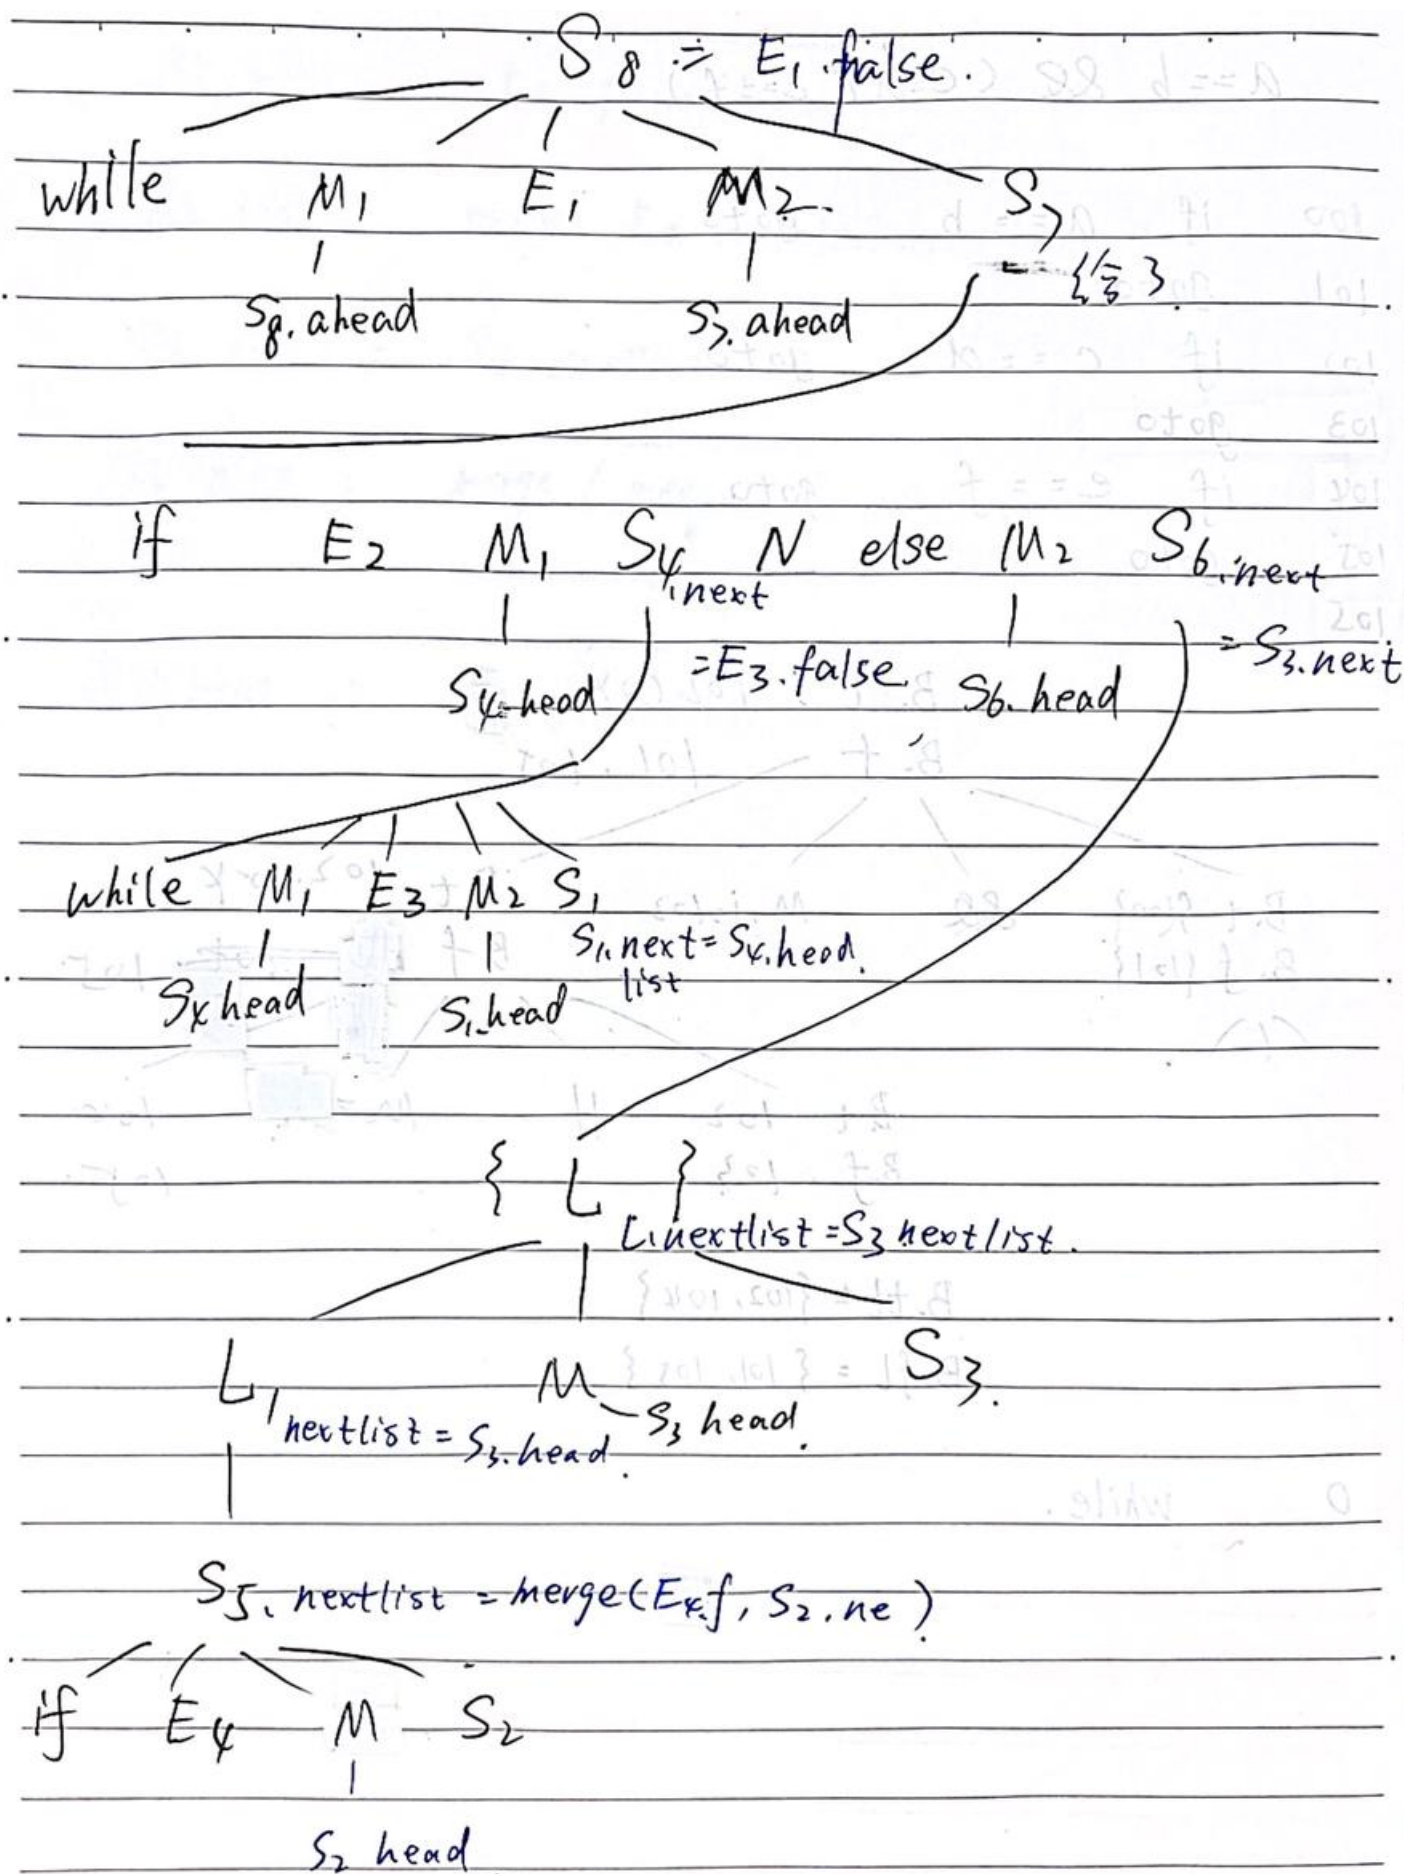 S8 := E1.false.
while M1 E1 M2. S7
S8.ahead S7.ahead
if E2 M1 S4.next N else M2 S6.next
=E3.false =S3.next
S4.head S6.head
while M1 E3 M2 S1
S1.next=S4.head.
list
Sx head S1.head
{ L }
L.nextlist=S3 nextlist.
L1 M S3.
nextlist=S3.head. S3 head.
S5.nextlist=merge(E4.f, S2.ne)
if E4 M S2
S2 head